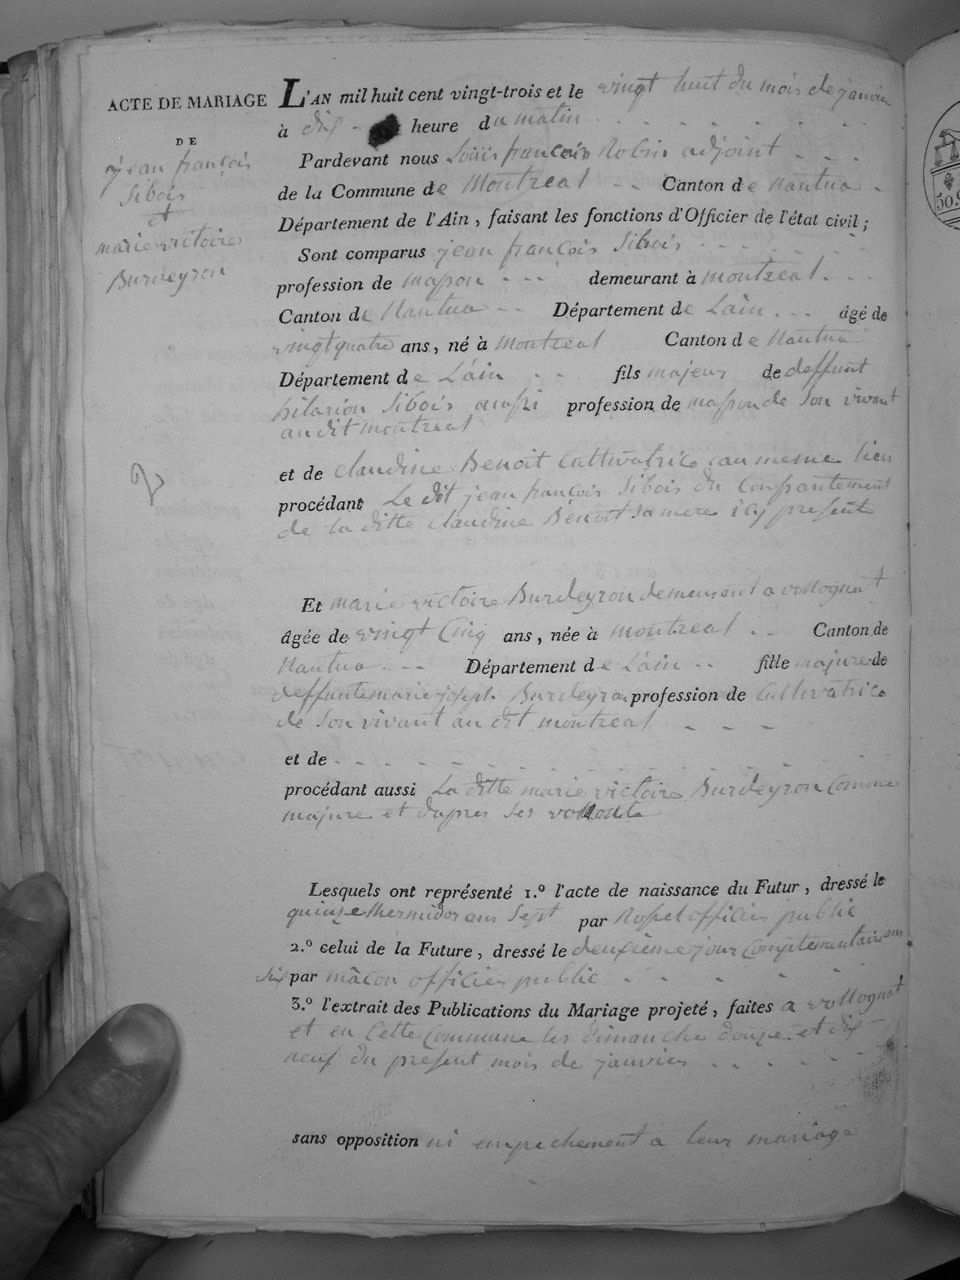 ACTE DE MARIAGE
DE
jean françois
Sibois
et
marie victoire
Burdeyron
L'AN mil huit cent vingt-trois et le vingt huit du mois de janvier
à dix heure du matin
Pardevant nous Louis françois Robin adjoint
de la Commune de Montreal Canton de Nantua
Département de l'Ain, faisant les fonctions d'Officier de l'état civil;
Sont comparus jean françois Sibois
profession de masson demeurant à montreal
Canton de Nantua Département de L'ain âgé de
vingt quatre ans, né à Montreal Canton de Nantua
Département de L'ain fils majeur de deffunt
hilarion Sibois aussi profession de masson de son vivant
au dit montreal
et de claudine Benoit Cultivatrice au meme lieu
procédant Le dit jean françois Sibois du Consantement
de la ditte claudine Benoit sa mere icy present
Et marie victoire Burdeyron demeurant a vollognat
âgée de vingt Cinq ans, née à montreal Canton de
Nantua Département de L'ain fille majure de
deffunte marie joseph Burdeyron profession de Cultivatrice
de son vivant au dit montreal
et de
procédant aussi La ditte marie victoire Burdeyron Comme
majure et dapres ses vollonte
Lesquels ont représenté 1.º l'acte de naissance du Futur, dressé le
quinze thermidor ans Sept par Rosset officier public
2.º celui de la Future, dressé le deuxieme jour Complementaire ans
Six par mâcon officier public
3.º l'extrait des Publications du Mariage projeté, faites a vollognat
et en Cette Commune les dimanche douze et dix
neuf du present mois de janvier
sans opposition ni empechement a leur mariage